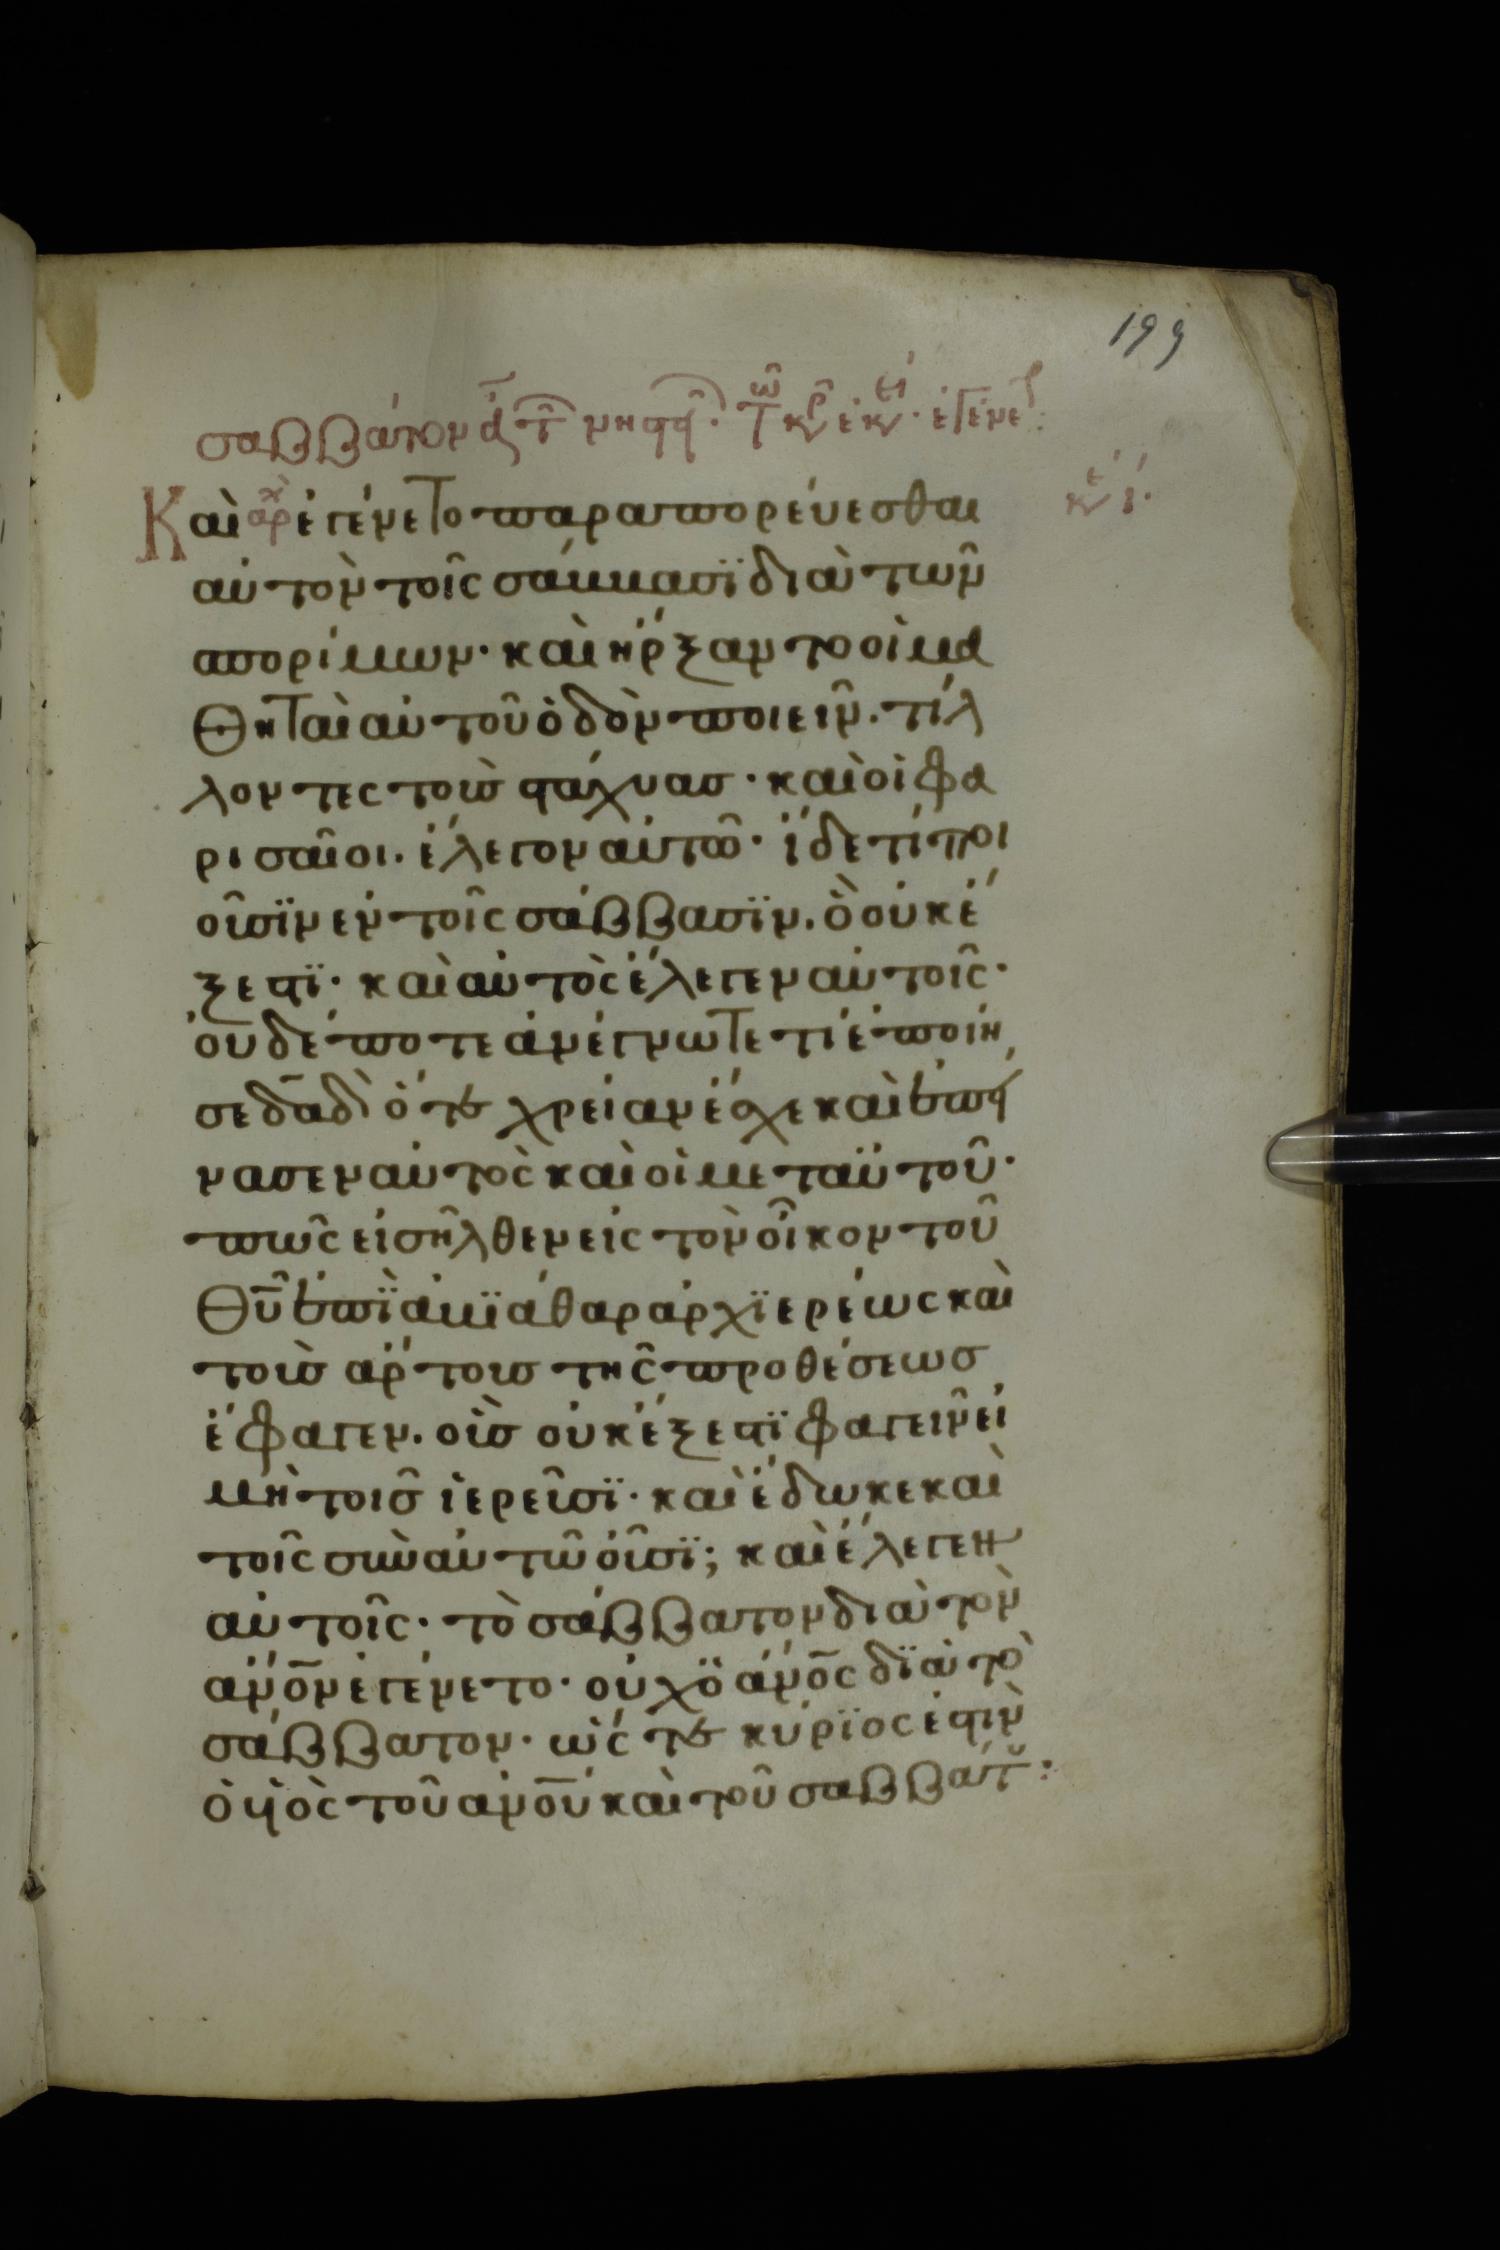 199
σαββάτον
κε ι.
Καὶ ἐγένετο παραπορεύεσθαι
αὐτὸν τοῖς σάββασϊ διὰ τῶν
σπορίμων· καὶ ἤρξαντο οἱ μα
θηταὶ αὐτοῦ ὁδὸν ποιεῖν. τίλ
λοντες τοὺς στάχυας· καὶ οἱ φα
ρισαῖοι. ἔλεγον αὐτῶ· ἴδε τί ποι
οῦσϊν ἐν τοῖς σάββασϊν. ὃ οὐκ ἔ
ξεστϊ· καὶ αὐτὸς ἔλεγεν αὐτοῖς·
οὐδέποτε ἀνέγνωτε τί ἐποίη
σε δᾱδ̄ ὅτε χρείαν ἔσχε καὶ ἐπεί
νασεν αὐτὸς καὶ οἱ μετ αὐτοῦ·
πῶς εἰσῆλθεν εἰς τὸν οἶκον τοῦ
θῡ ἐπῒ ἀβϊάθαρ ἀρχϊερέως καὶ
τοὺς ἄρτους τῆς προθέσεως
ἔφαγεν. οὓς οὐκ ἔξεστϊ φαγεῖν εἰ
μὴ τοῖς ἱερεῦσϊ· καὶ ἔδωκε καὶ
τοῖς σὺν αὐτῶ οὖσϊ; καὶ ἔλεγεν
αὐτοῖς· τὸ σάββατον διὰ τὸν
ἄνο̄ν ἐγένετο· οὐχ ὁ ἄνο̄ς δϊὰ τὸ
σάββατον· ὥστε κύρϊος ἐστὶν
ὁ υἱὸς τοῦ ἀνο̄υ καὶ τοῦ σαββάτου: